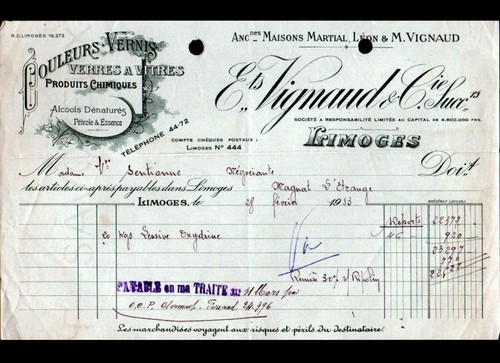 R.C. LIMOGES 16.373
Ancnes Maisons Martial, Léon & M. VIGNAUD
COULEURS - VERNIS
VERRES A VITRES
PRODUITS CHIMIQUES
Alcools Dénaturés
Pétrole & Essence
TÉLÉPHONE 44-72
Ets Vignaud & Cie, Succrs
SOCIÉTÉ A RESPONSABILITÉ LIMITÉE AU CAPITAL DE 4.800.000 FRS.
COMPTE CHÈQUES POSTAUX :
LIMOGES No 444
LIMOGES
Madame Vve Sertianne Négociante Doit
les articles ci-après payables dans Limoges Magnat l'Etrange
LIMOGES, le 28 février 1953
Reports 22378
20 Kgs Lessive Oxydrine 46 920
23297
Remise 30% s/ Ripolin
22627
PAYABLE en ma TRAITE au 31 Mars prn
C.C.P. Clermont-Ferrand 24.796
Les marchandises voyagent aux risques et périls du Destinataire.